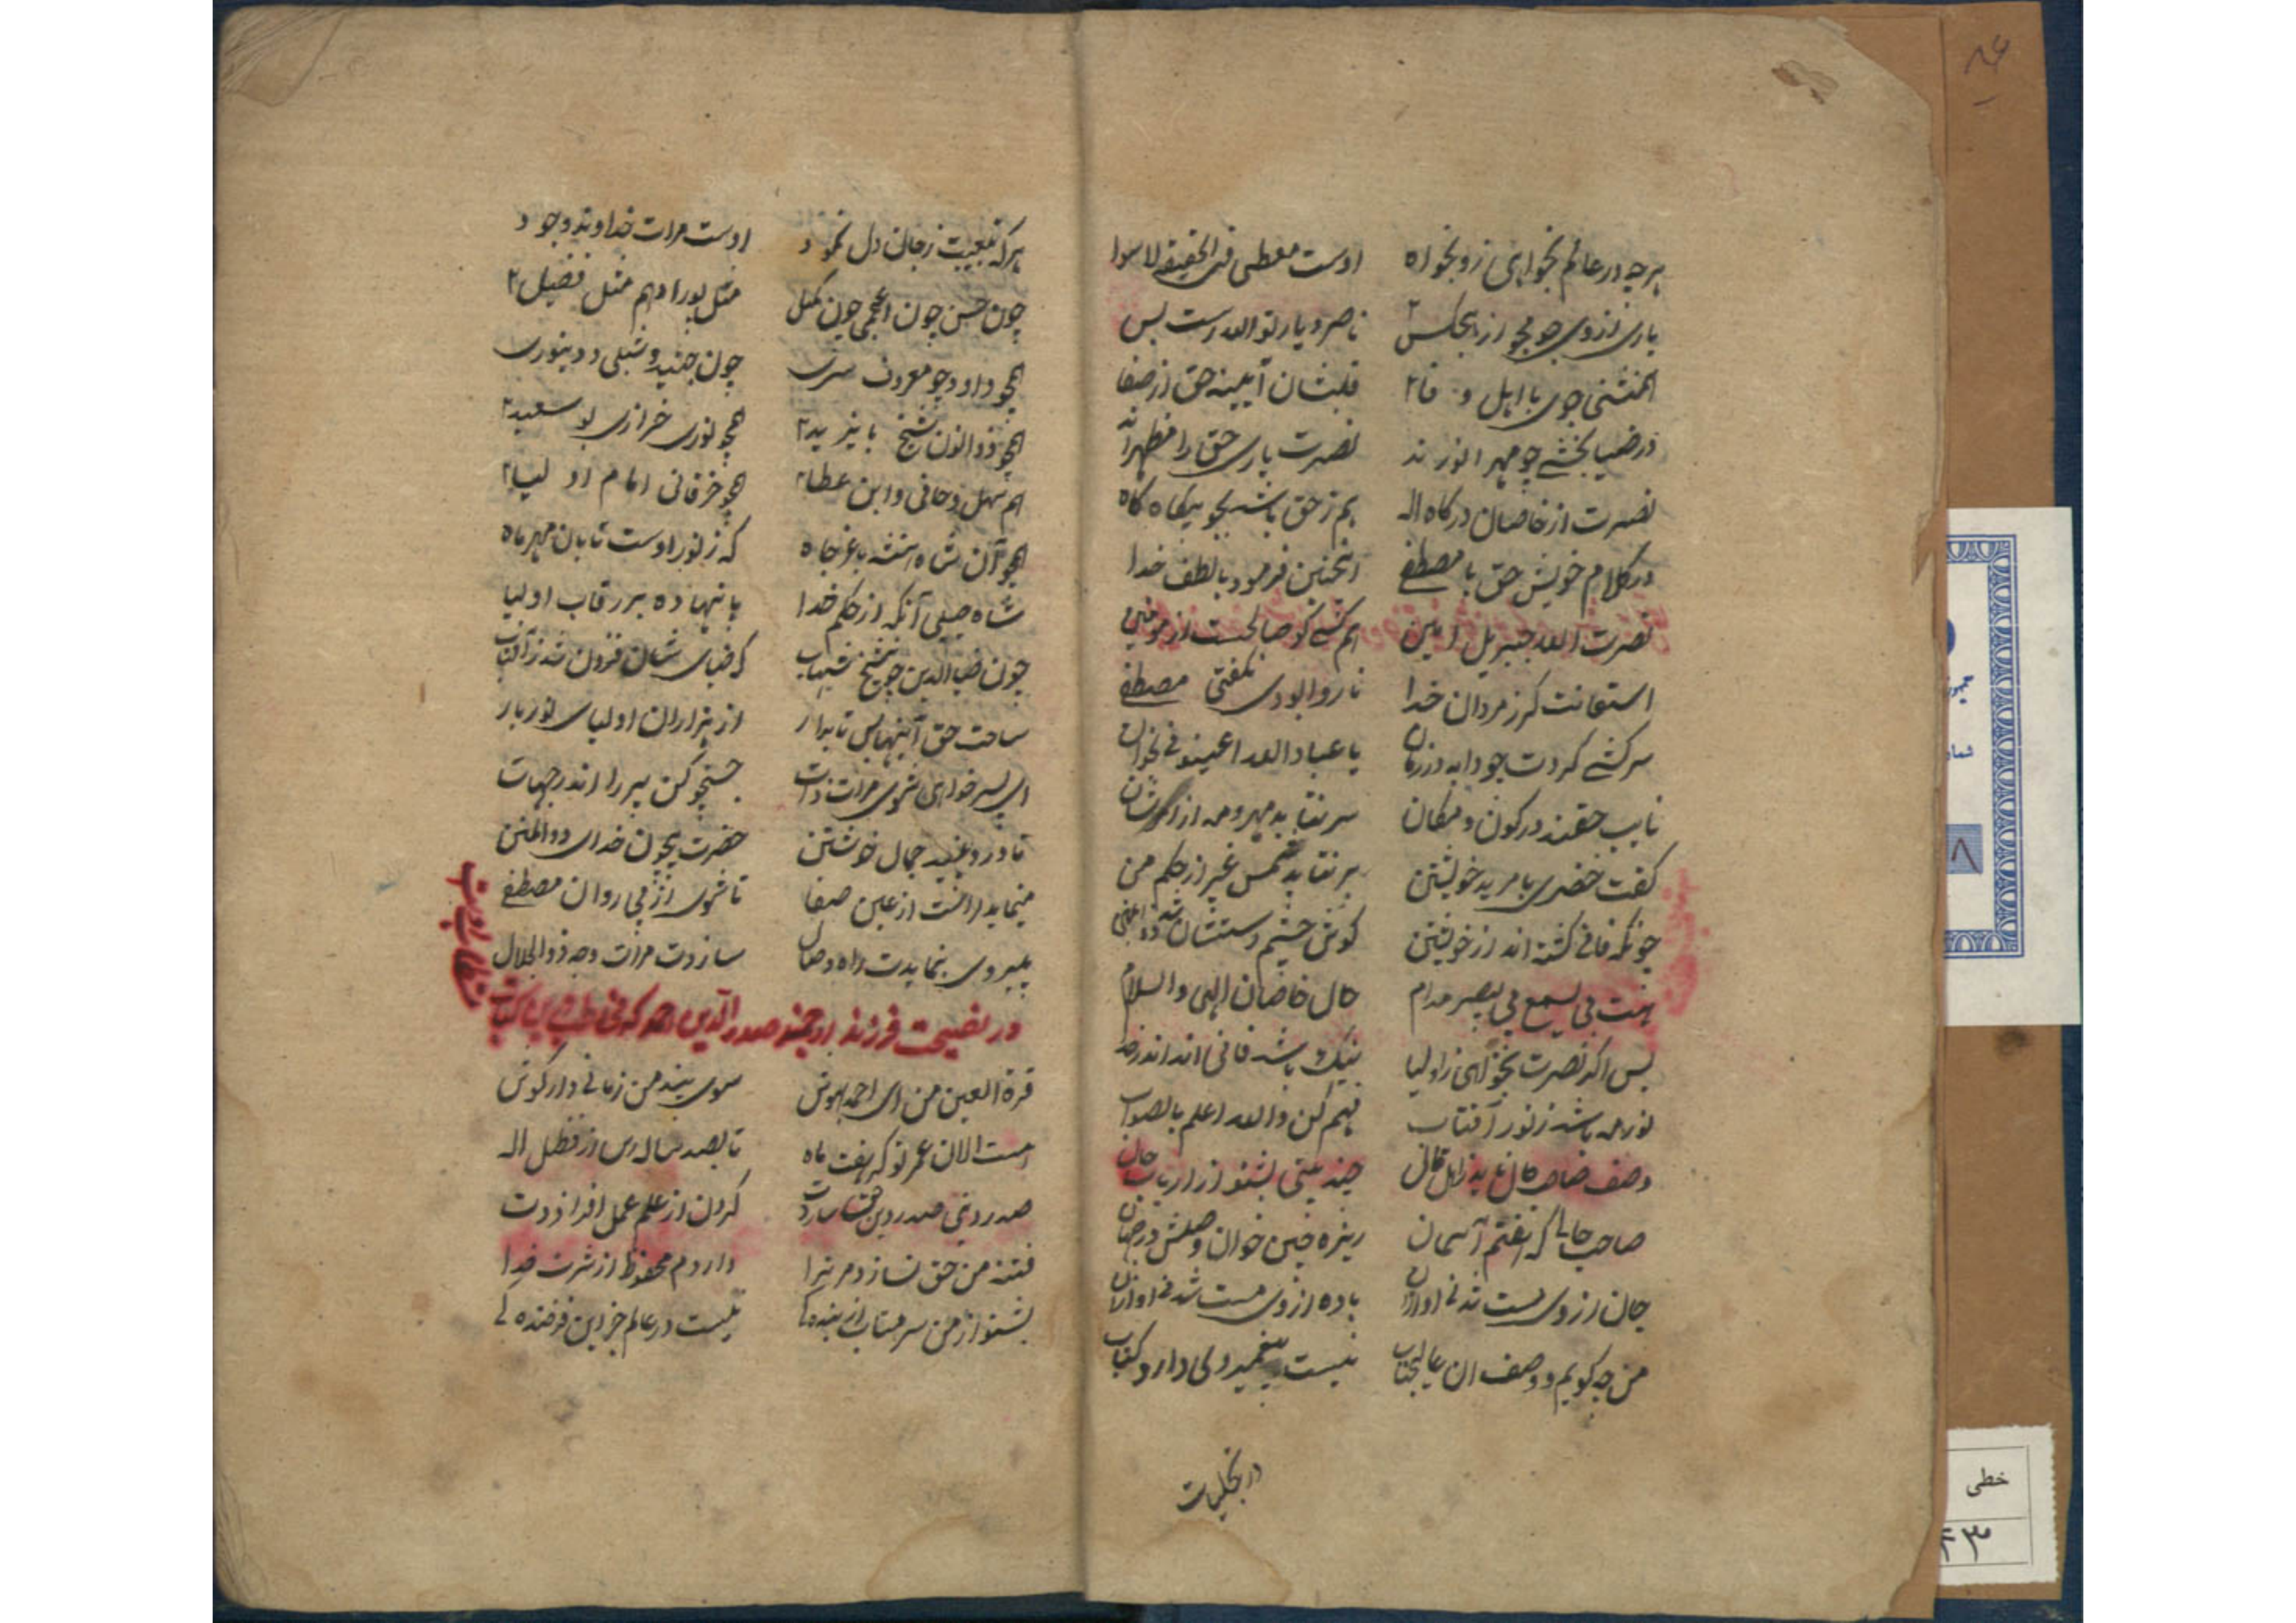 هرچه در عالم بخواهی زو بخواه اوست معطی فی الحقیقه لا سوا
یاری از وی جو مجو از هیچکس ناصر و یار تو الله است بس
همنشنی جوی با اهل وفا قلبشان آیینه حق از صفا
در ضیا بخشی چو مهر انورند نصرت یاری حق را مظهراند
نصرت از خاصان درگاه اله هم ز حق باشد بجو بیگاه گاه
در کلام خویش حق با مصطفی اینچنین فرمود با لطف خدا
نصرت الله جبریل امین هم کسی کو صالحست از مومنین
استعانت کر ز مردان خدا ناروا بودی نگفتی مصطفی
سرکشی کردت چو دابه در زمان یا عباد الله اعینونی بخوان
نایب حقند در کون و مکان سر نتابد مهر و مه از امرشان
گفت خضری با مرید خویشتن بر نتابد شمس غیر از حکم من
چونکه فانی گشته اند از خویشتن گوش چشم و دستشان شد ذو المنن
هست بی یسمع بی یبصر مدام حال خاصان الهی والسلام
پس اگر نصرت بخواهی ز اولیا نیک باشد فانی اند اندر خدا
نور مه باشد ز نور آفتاب فهم کن والله اعلم بالصواب
وصف صاحب حال ناید ز اهل قال چند بیتی بشنو از ارباب حال
صاحب حالی که هفتم آسمان ریزه چین خوان وصلش در جهان
جان از وی مست شد نی او از آن باده از وی مست شد نی او از آن
من چه گویم وصف آن عالیجناب نیست پیغمبر ولی دارد کتاب
در تجلیات
هر که تبعیت ز جان دل نمود اوست مرات خداوند وجود
چون حسن چون اعجمی چون کمل مثل پور ادهم مثل فضیل
همچو داود و چو معروف سری چون جنید و شبلی و دینوری
همچو ذوالنون شیخ بایزید همچو نوری خرازی بوسعید
هم سهل روحانی و ابن عطا همچو خرقانی امام اولیا
همچو آن شاهنشه با عز جاه که ز نور اوست تابان مهر ماه
شاه جیلی آنکه از حکم خدا پا نهاده بر رقاب اولیا
چون ضیاالدین چو شیخ شهاب که ضیای شان فزون شد ز آفتاب
ساخت حق آیینهای تابدار از هزاران اولیای نوربار
ای پسر خواهی شوی مرات ذات جستجو کن پیر را اندر جهات
تا در و بیند جمال خویشتن حضرت بیچون خدای ذوالمنن
مینماید راهت از عین صفا تا شوی از پی روان مصطفی
پیروی بنمایدت راه وصال سازدت مرات وجه ذوالجلال
در نصیحت فرزند ارجمند صدر الدین احمد که مخاطب این کتاب
قرة العین من ای احمد بهوش سوی پند من زمانی دار گوش
هست الان عمر تو که هفت ماه تا بصد سال رسی از فضل اله
صدر دینی صدر دین حق سازدت گردن از علم عمل افرازدت
فتنه من حق نسازد مر ترا داردم محفوظ از شرت خدا
بشنو از من سر متاب از بندگی نیست در عالم جز این فرخندگی
خطی